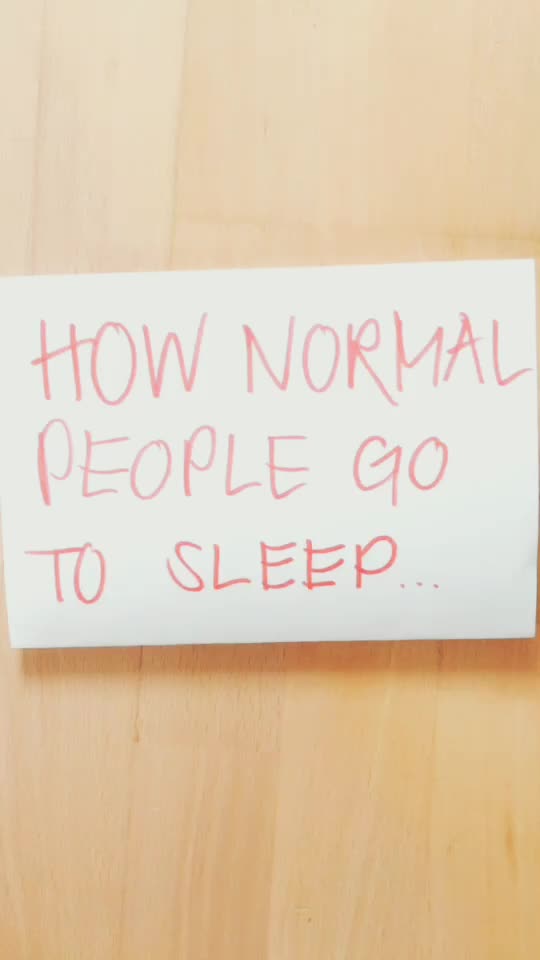 HOW NORMAL
PEOPLE GO
TO SLEEP...